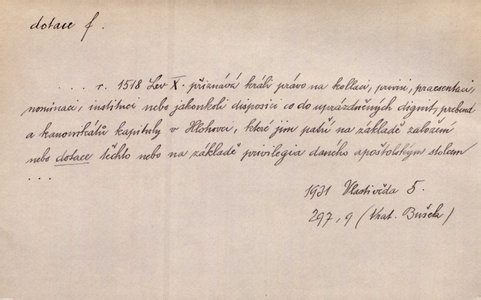 dotace f.
. . . . r. 1518 Lev X. přiznává králi právo na kollaci, provisi, praesentaci
nominaci, instituci nebo jakoukoli disposici co do uprázdněných dignit, prebend
a kanonikátů kapituly v Hlohovci, které jim patří na základě založení
nebo dotace těchto nebo na základě privilegia daného apoštolským stolcem
. . .
1931 Vlastivěda 5.
297, 9 (Vrat. Bušek)